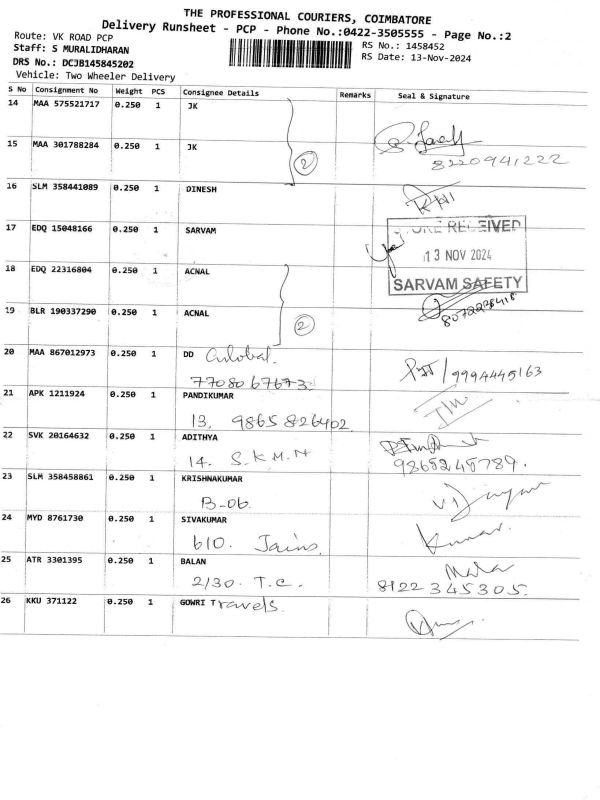 THE PROFESSIONAL COURIERS, COIMBATORE
Delivery Runsheet - PCP - Phone No.:0422-3505555 - Page No.:2
Route: VK ROAD PCP
RS No.: 1458452
Staff: S MURALIDHARAN
RS Date: 13-Nov-2024
DRS No.: DCJB145845202
Vehicle: Two Wheeler Delivery
S No Consignment No Weight PCS Consignee Details Remarks Seal & Signature
14 MAA 575521717 0.250 1 JK
15 MAA 301788284 0.250 1 JK
2
8220941222
16 SLM 358441089 0.250 1 DINESH
17 EDQ 15048166 0.250 1 SARVAM
RECEIVED
13 NOV 2024
SARVAM SAFETY
18 EDQ 22316804 0.250 1 ACNAL
19 BLR 190337290 0.250 1 ACNAL
2
20 MAA 867012973 0.250 1 DD Global.
77080 67673
9994445163
21 APK 1211924 0.250 1 PANDIKUMAR
13. 9865826402
22 SVK 20164632 0.250 1 ADITHYA
14. S.K.M.N
9865245789.
23 SLM 358458861 0.250 1 KRISHNAKUMAR
B-06
24 MYD 8761730 0.250 1 SIVAKUMAR
610. Jains
Kumar.
25 ATR 3301395 0.250 1 BALAN
2/30. T.C.
Mala
8122345305.
26 KKU 371122 0.250 1 GOWRI Travels.